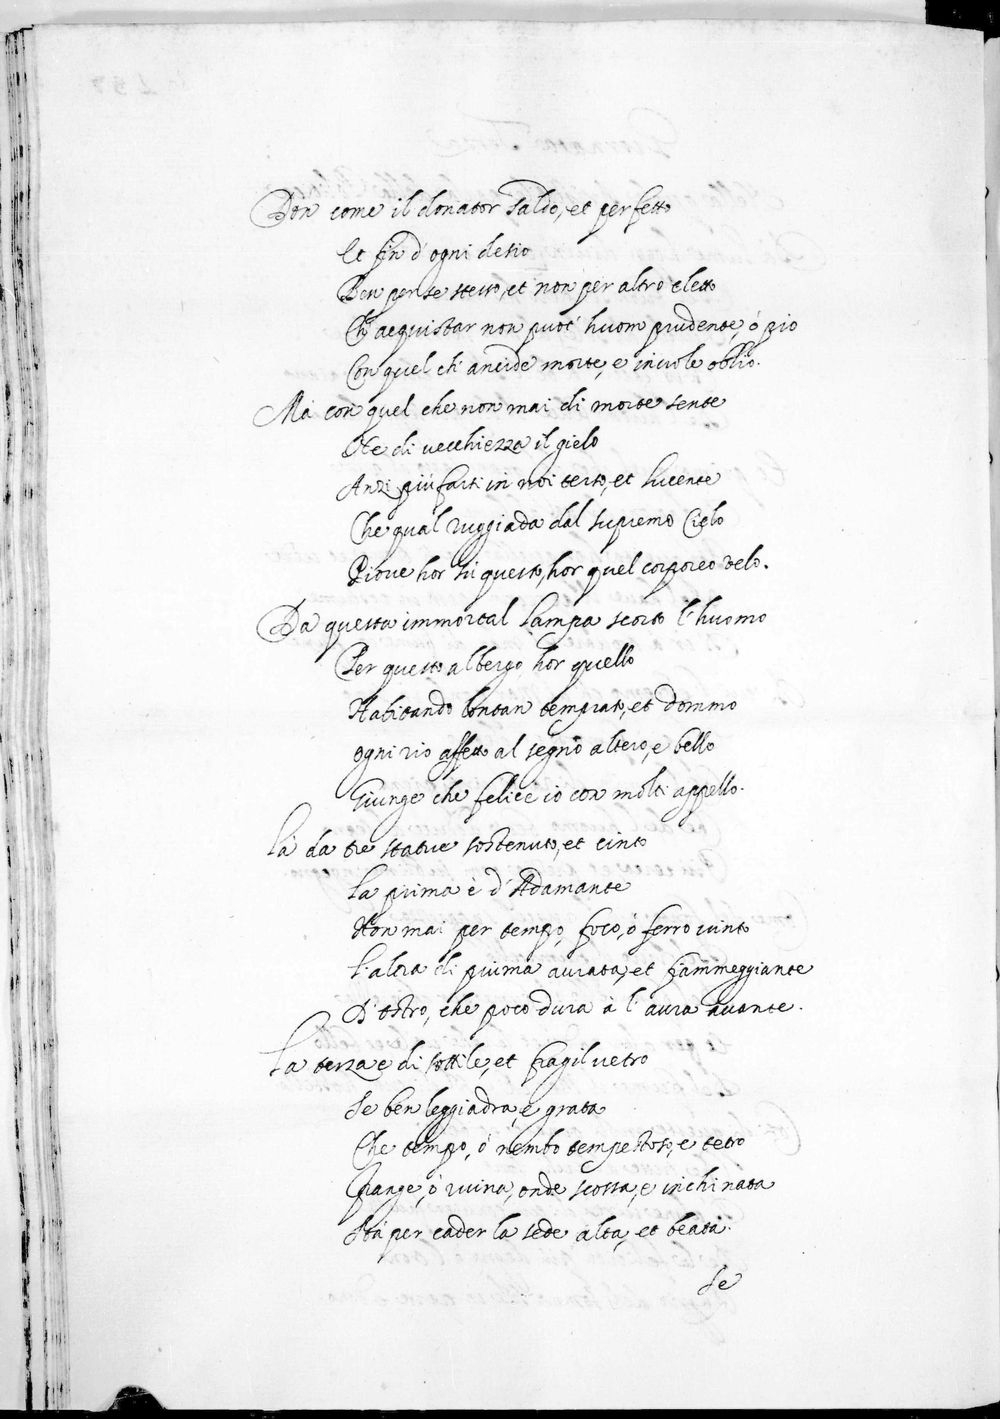 Don come il donator saldo, et perfetto
Et fin d'ogni desio
Don per se stesso, et non per altro eletto
Ch' acquistar non puot' huom prudente, ò pio
Con quel ch' ancide morte, e invole oblio.
Ma con quel che non mai di morte sente
Ne di vecchiezza il gielo
Anzi più farsi in noi terso, et lucente
Che qual ruggiada dal supremo Cielo
Piove hor su questo, hor quel corporeo velo.
Da questa immortal lampa scorto l'huomo
Per questo albergo, hor quello
Habitando lontan temprato, et dommo
Ogni rio affetto al segno altero, e bello
Giunge che felice io con molti appello.
Là da tre statue sostenuto, et cinto
La prima è d'Adamante
Non mai per tempo, foco, ò ferro vinto
L'altra di piuma aurata, et fiammeggiante
D'ostro, che poco dura à l'aura avante.
La terza è di sottile, et fragil vetro
Se ben leggiadra, e grata
Che tempo, ò nembo tempestoso, e tetro
Frange, ò ruina, onde scossa, e inchinata
Stà per cader la sede alta, et beata.
Se